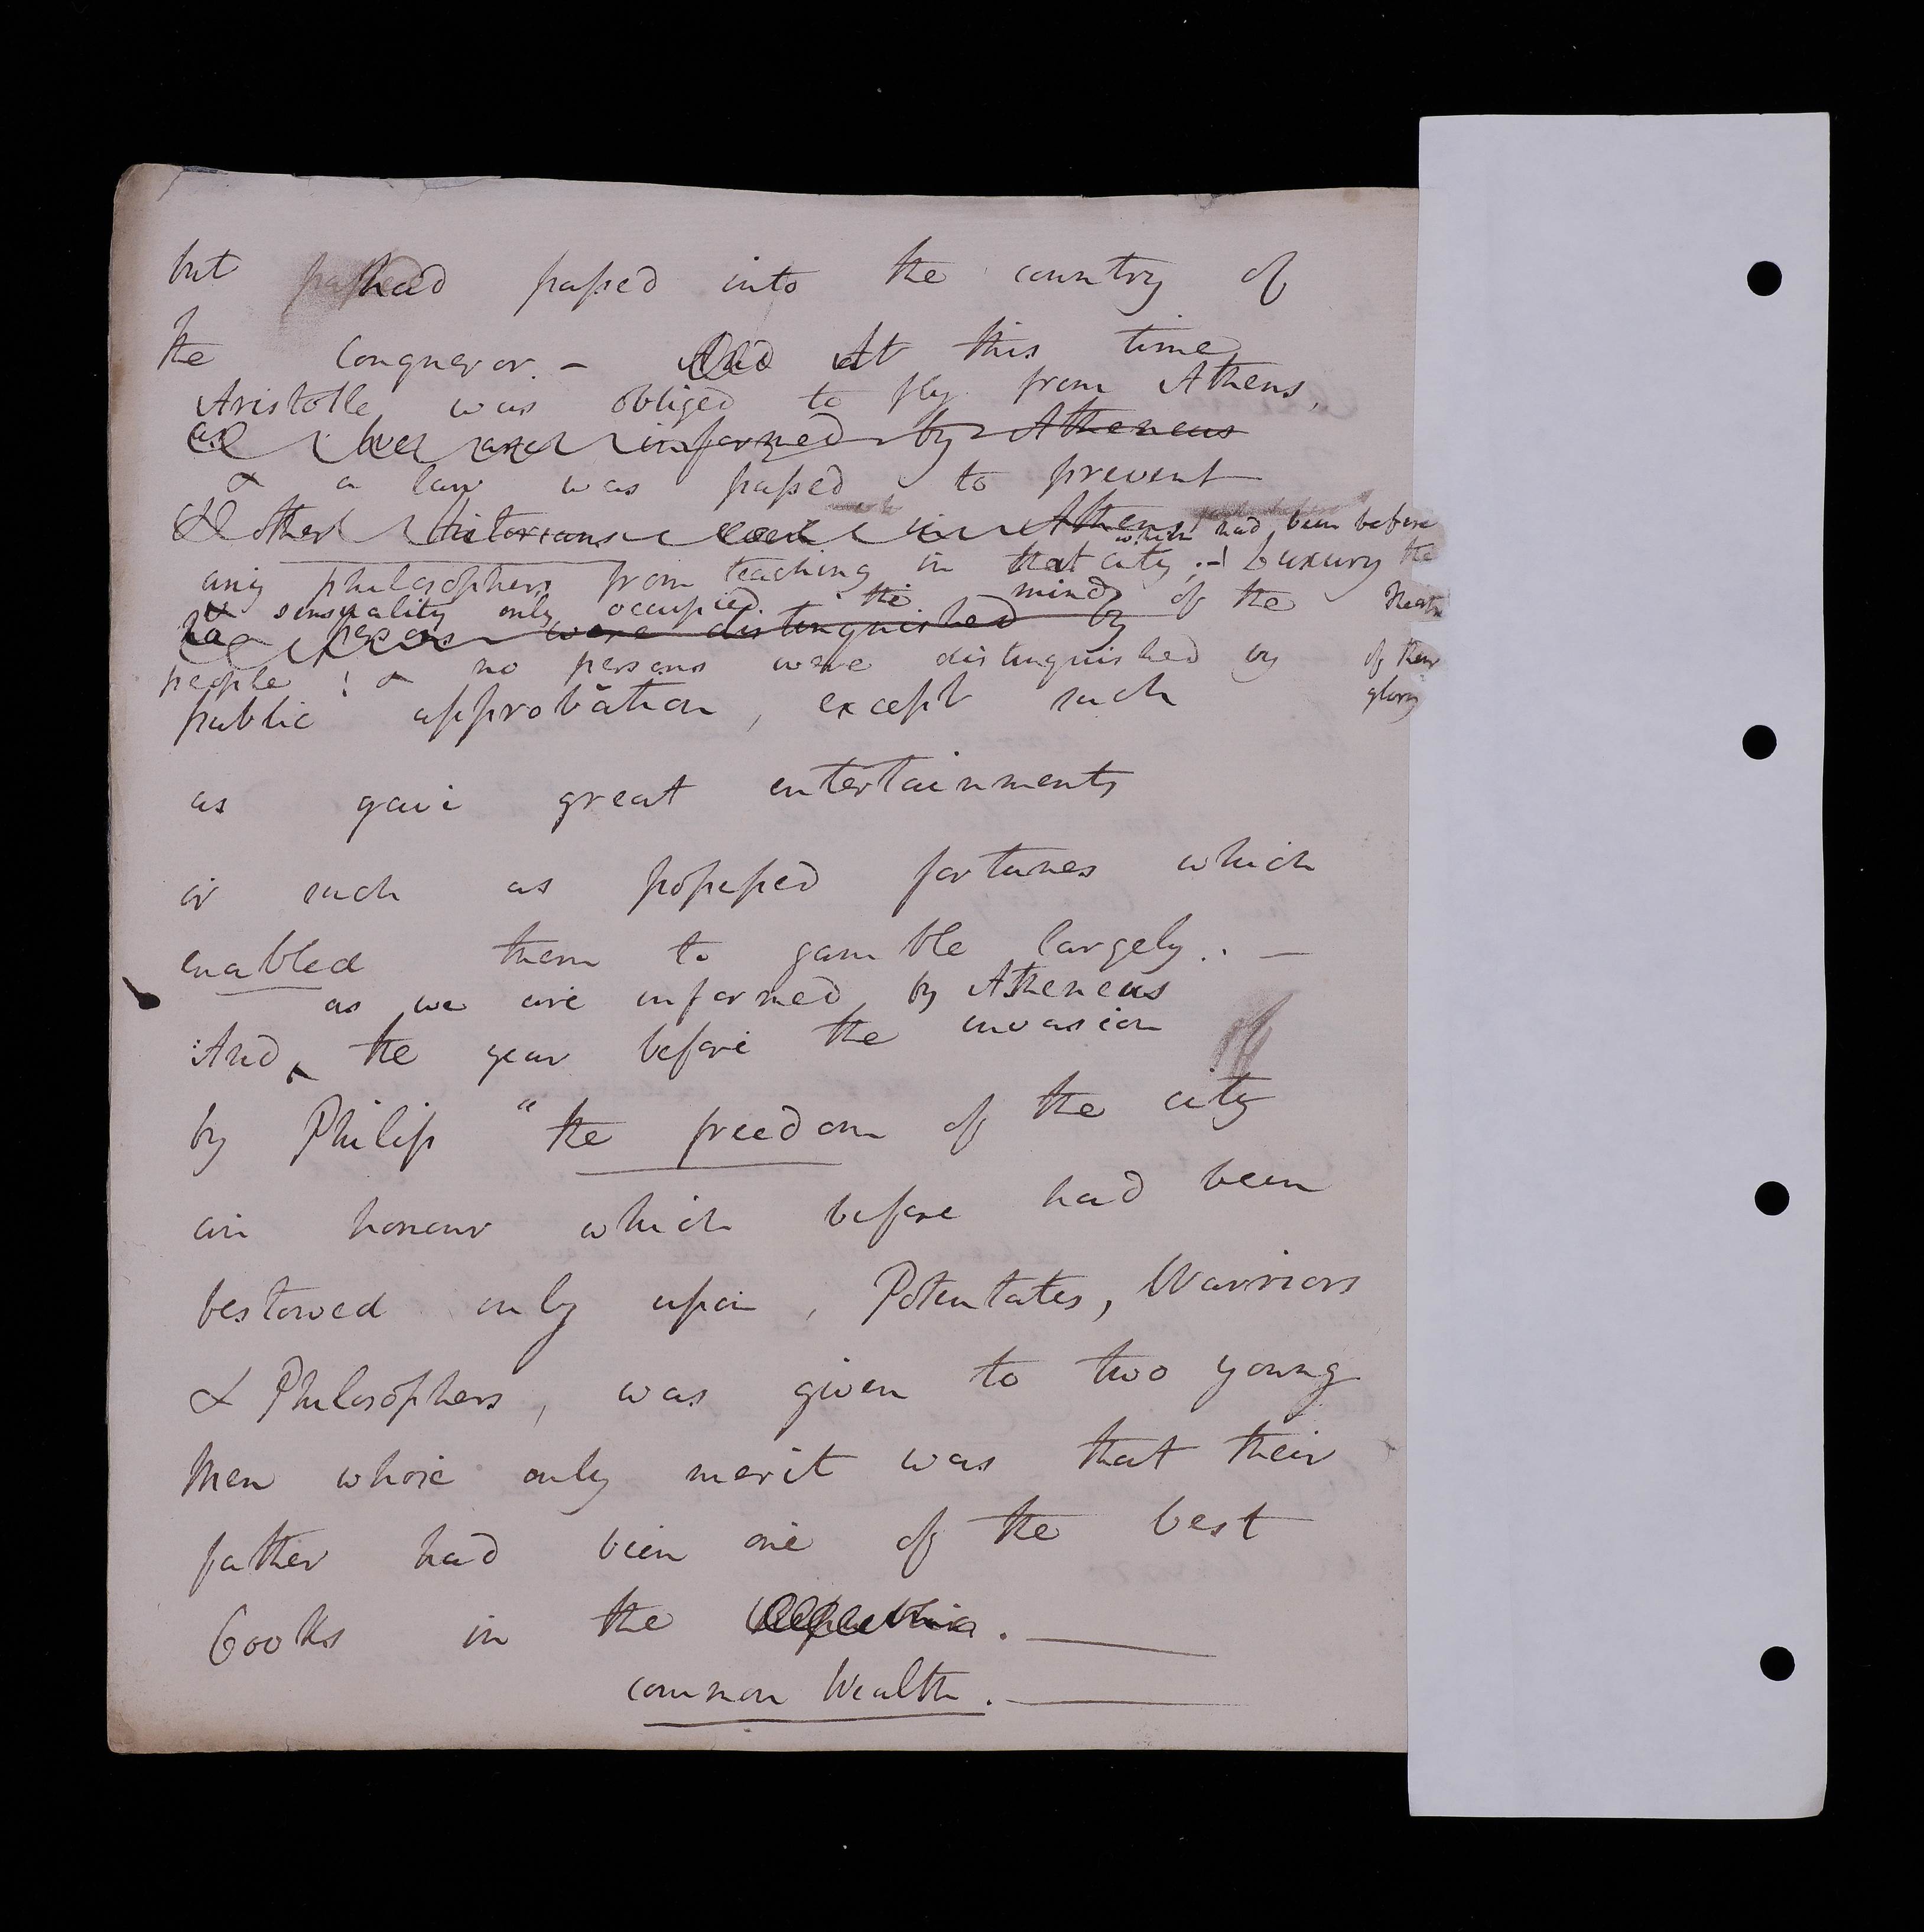 but had passed into the country of
the Conqueror. – And At this time
Aristotle was obliged to fly from Athens,
as we are informed by Atheneus
& a law was passed to prevent
& other historians in Athens
which had been before
any philosophers from teaching in that city; – Luxury the
& sensuality only occupied the minds of the theatre
no persons were distinguished by
people ! & no persons were distinguished by of their
public approbation, except such glory
as gave great entertainments
or such as possessed fortunes which
enabled them to gamble largely. –
as we are informed by Atheneus
And the year before the invasion of
by Philip "the freedom of the city
an honour which before had been
bestowed only upon, Potentates, Warriors
& Philosophers, was given to two young
Men whose only merit was that their
father had been one of the best
Cooks in the Republic.
common Wealth.